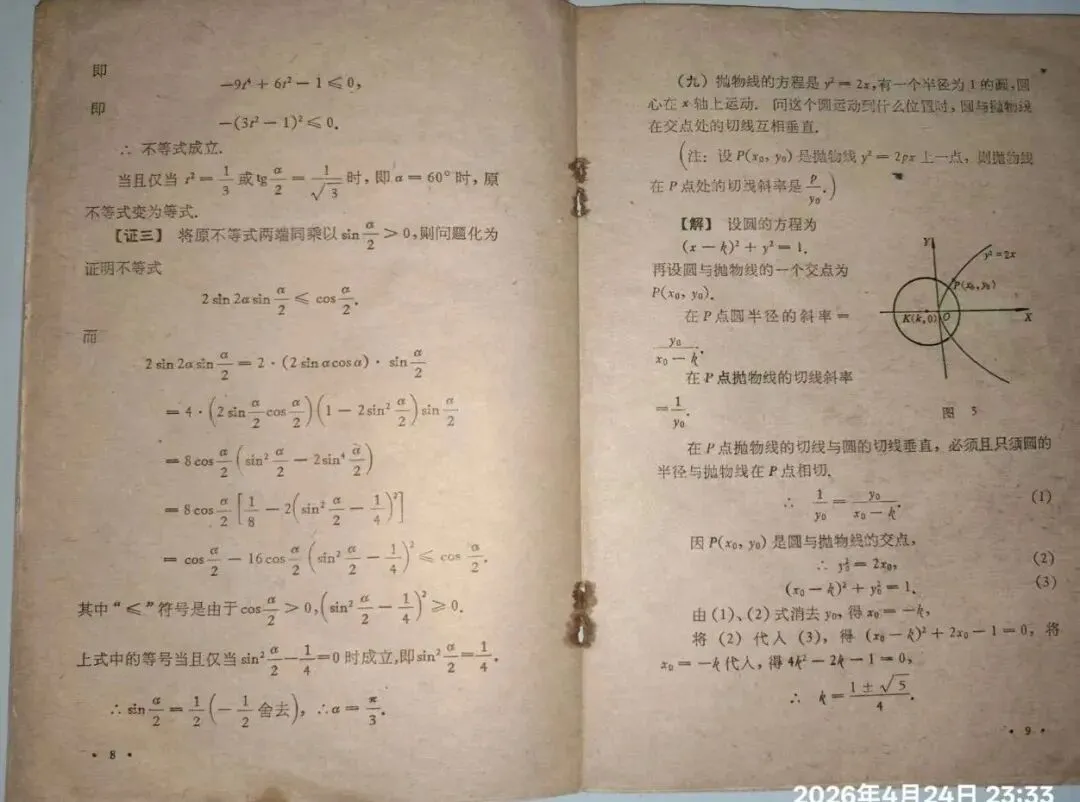 即
−9t⁴ + 6t² − 1 ⩽ 0,
即
−(3t² − 1)² ⩽ 0.
∴ 不等式成立.
当且仅当 t² = 1/3 或 tg α/2 = 1/√3 时, 即 α = 60° 时, 原
不等式变为等式.
【证三】 将原不等式两端同乘以 sin α/2 > 0, 则问题化为
证明不等式
2 sin 2α sin α/2 ⩽ cos α/2.
而
2 sin 2α sin α/2 = 2·(2 sin α cos α)· sin α/2
= 4·(2 sin α/2 cos α/2)(1 − 2sin² α/2) sin α/2
= 8 cos α/2 (sin² α/2 − 2sin⁴ α/2)
= 8 cos α/2 [1/8 − 2(sin² α/2 − 1/4)²]
= cos α/2 − 16 cos α/2 (sin² α/2 − 1/4)² ⩽ cos α/2.
其中“⩽”符号是由于 cos α/2 > 0, (sin² α/2 − 1/4)² ⩾ 0.
上式中的等号当且仅当 sin² α/2 − 1/4 = 0 时成立, 即 sin² α/2 = 1/4.
∴ sin α/2 = 1/2 (−1/2 舍去), ∴ α = π/3.
· 8 ·
(九) 抛物线的方程是 y² = 2x, 有一个半径为 1 的圆, 圆
心在 x 轴上运动. 问这个圆运动到什么位置时, 圆与抛物线
在交点处的切线互相垂直.
(注: 设 P(x₀, y₀) 是抛物线 y² = 2px 上一点, 则抛物线
在 P 点处的切线斜率是 p/y₀.)
【解】 设圆的方程为
(x − k)² + y² = 1.
再设圆与抛物线的一个交点为
P(x₀, y₀).
在 P 点圆半径的斜率 =
y₀/(x₀ − k).
在 P 点抛物线的切线斜率
= 1/y₀.
Y
y² = 2x
P(x₀, y₀)
K(k, 0)
O
X
图 5
在 P 点抛物线的切线与圆的切线垂直, 必须且只须圆的
半径与抛物线在 P 点相切.
∴ 1/y₀ = y₀/(x₀ − k). (1)
因 P(x₀, y₀) 是圆与抛物线的交点,
∴ y₀² = 2x₀, (2)
(x₀ − k)² + y₀² = 1. (3)
由 (1)、(2) 式消去 y₀, 得 x₀ = −k,
将 (2) 代入 (3), 得 (x₀ − k)² + 2x₀ − 1 = 0, 将
x₀ = −k 代入, 得 4k² − 2k − 1 = 0,
∴ k = (1 ± √5)/4.
· 9 ·
2026年4月24日 23:33